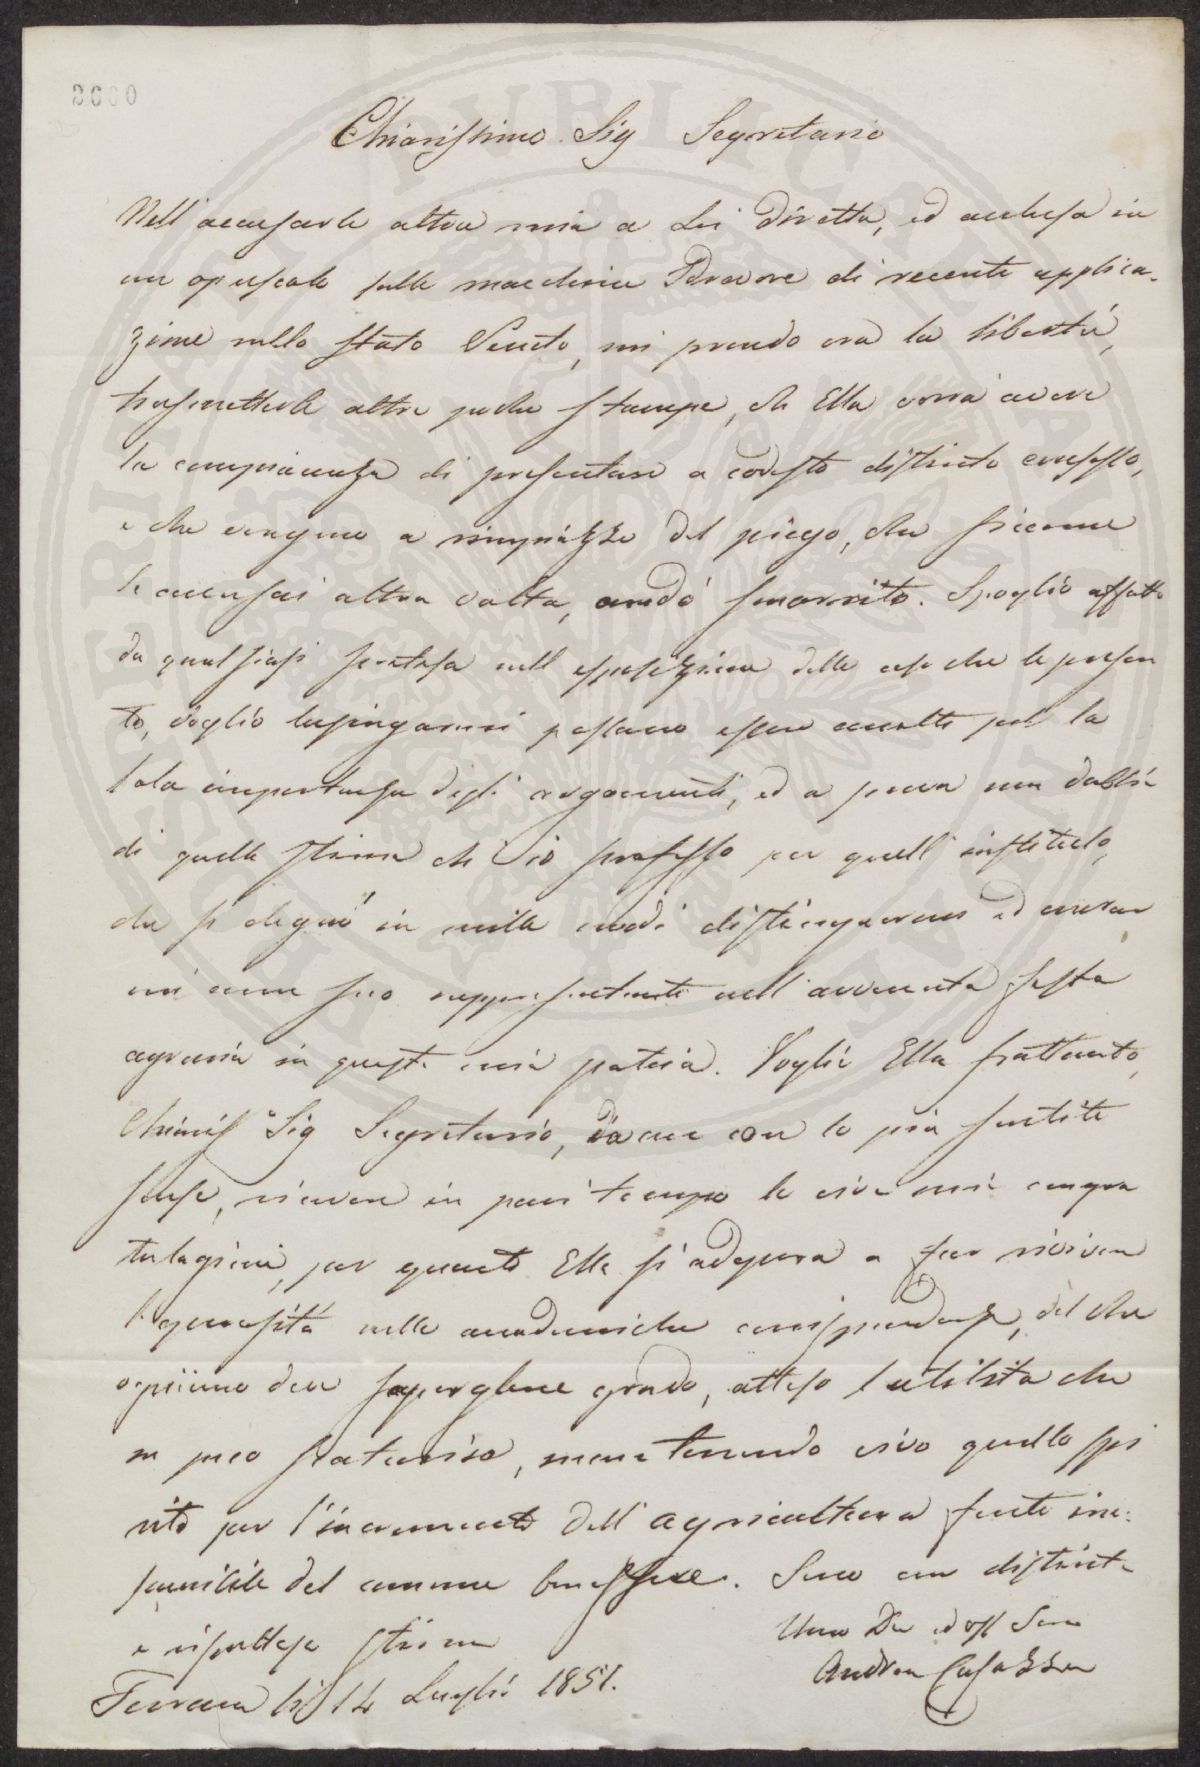 2600
Chiarissimo Sig Segretario
Nell'accusarle altra mia a Lei diretta, ed acchiusa in
un opuscolo sulle macchine di recente applica-
zione nello Stato Veneto, mi prendo ora la libertà,
trasmetterle altre poche stampe, che Ella vorrà avere
la compiacenza di presentare a codesto distinto consesso,
e che vengono a rimpiazzo del piego, che siccome
le accusai altra volta, andò smarrito. Spoglio affatto
da qualsiasi pretesa nell esposizione delle cose che le presen
to, voglio lusingarmi possano essere accolte per la
sola importanza degli argomenti, ed a prova non dubbia
di quella stima che io professo per quell'instituto,
che si degnò in mille modi distinguermi ed onorar
mi come suo rappresentante nell'avvenuta festa
agraria in questa mia patria. Voglia Ella frattanto,
Chiariss Sig Segretario, con le più sentite
scuse, ricevere in pari tempo le vive mie congra
tulazioni, per quanto Ella si adopera a far rivivere
l'operosità nelle accademiche corrispondenze, del che
ognuno deve sapergliene grado, atteso l'utilità che
ne può scaturire, mantenendo vivo quello spi
rito per l'incremento dell'agricoltura fonte ine-
sauribile del comune benessere. Sono con distinta
e rispettosa stima
Umo Dev ed Obb Serv
Andrea Casazza
Ferrara li 14 Luglio 1851.